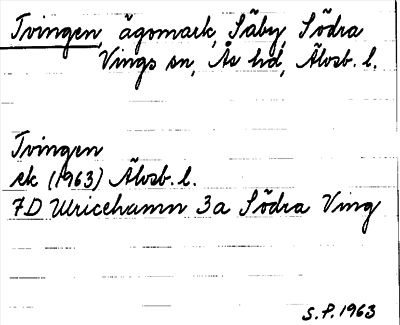 Tvingen, ägomark, Säby, Södra
Vings sn, Ås hd, Älvsb. l.
Tvingen
ek (1963) Älvsb. l.
7D Ulricehamn 3a Södra Ving
S.P. 1963